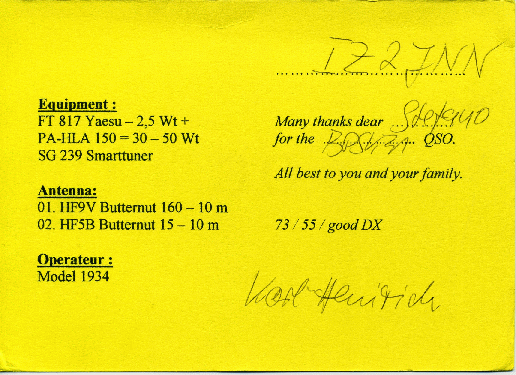 IZ2JNN
Equipment :
FT 817 Yaesu – 2,5 Wt +
PA-HLA 150 = 30 – 50 Wt
SG 239 Smarttuner
Many thanks dear Stefano
for the QSO.
All best to you and your family.
Antenna:
01. HF9V Butternut 160 – 10 m
02. HF5B Butternut 15 – 10 m
73 / 55 / good DX
Operateur :
Model 1934
Karl-Heinrich